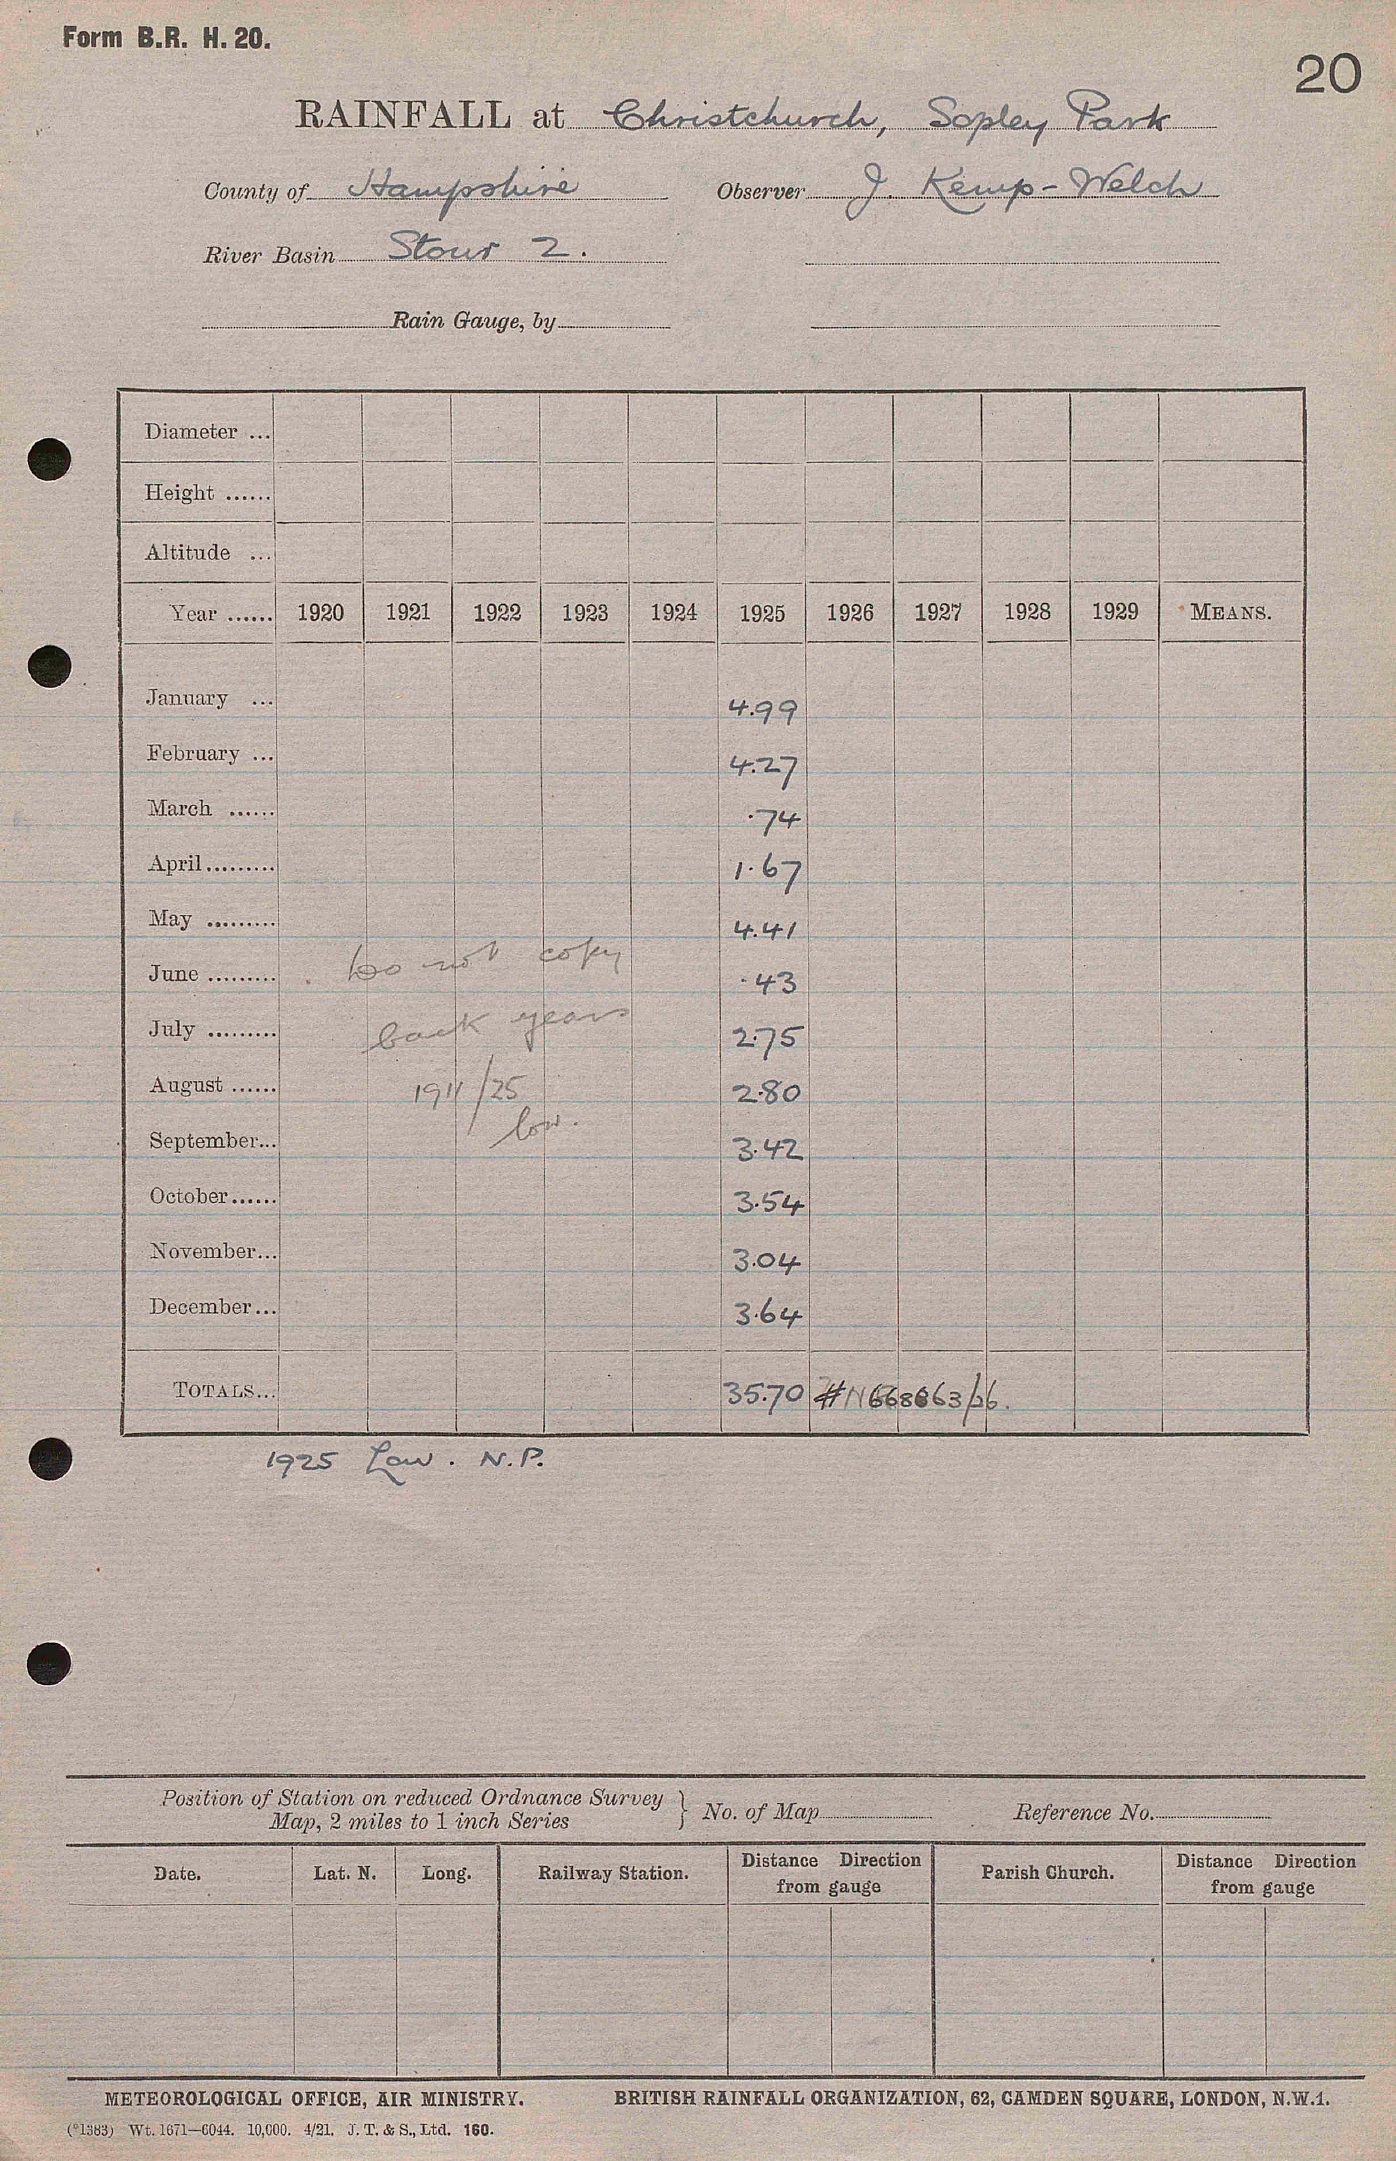 Form B.R. H. 20.
20
RAINFALL at Christchurch, Sopley Park
County of Hampshire Observer J. Kemp-Welch
River Basin Stour 2.
Rain Gauge, by
Diameter ...
Height ......
Altitude ...
Year ...... 1920 1921 1922 1923 1924 1925 1926 1927 1928 1929 MEANS.
January ... 4.99
February ... 4.27
March ...... .74
April ......... 1.67
May ......... 4.41
June ......... .43
Do not copy
July ......... 2.75
back years
August ...... 2.80
1911/25
low.
September... 3.42
October...... 3.54
November... 3.04
December... 3.64
TOTALS... 35.70
1925 Low. N.P.
Position of Station on reduced Ordnance Survey
Map, 2 miles to 1 inch Series } No. of Map Reference No.
Date. Lat. N. Long. Railway Station. Distance Direction from gauge Parish Church. Distance Direction from gauge
METEOROLOGICAL OFFICE, AIR MINISTRY. BRITISH RAINFALL ORGANIZATION, 62, CAMDEN SQUARE, LONDON, N.W.1.
(*1383) Wt. 1671—6044. 10,000. 4/21. J. T. & S., Ltd. 160.